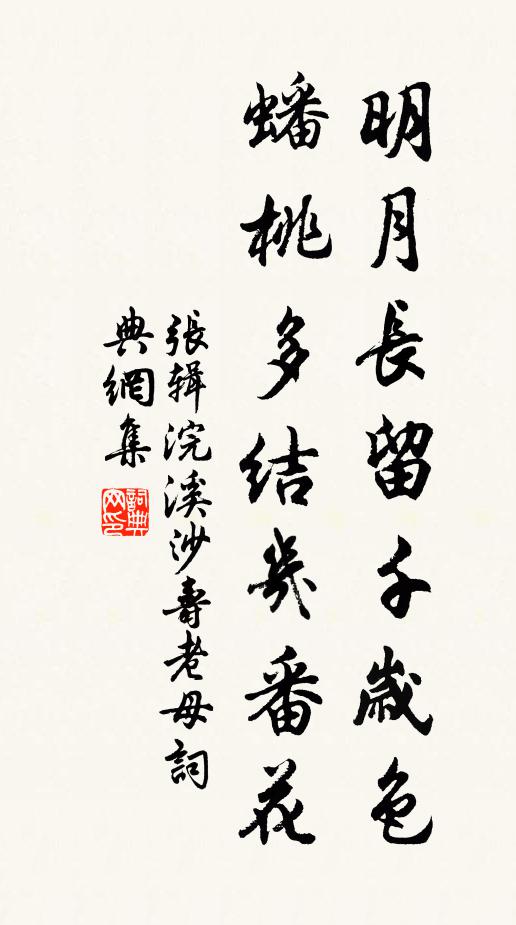 明月長留千歲色
蟠桃多結幾番花
張輯浣溪沙壽老母詞
典網集
詞典網印